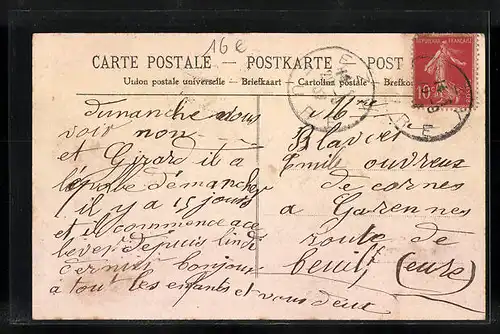 16 e
CARTE POSTALE — POSTKARTE — POST
Union postale universelle — Briefkaart — Cartolina postale — Brefkort
REPUBLIQUE FRANÇAISE
10
dimanche vous
voir non
et Girard il à
démancher
il y a 15 jours
et il commence a ce
lever depuis lindi
dernier bonjour
à tout les enfants et vous deux
Mme
Blavet
Emile ouvreux
de cornes
a Garennes
route de
beuil (eure)